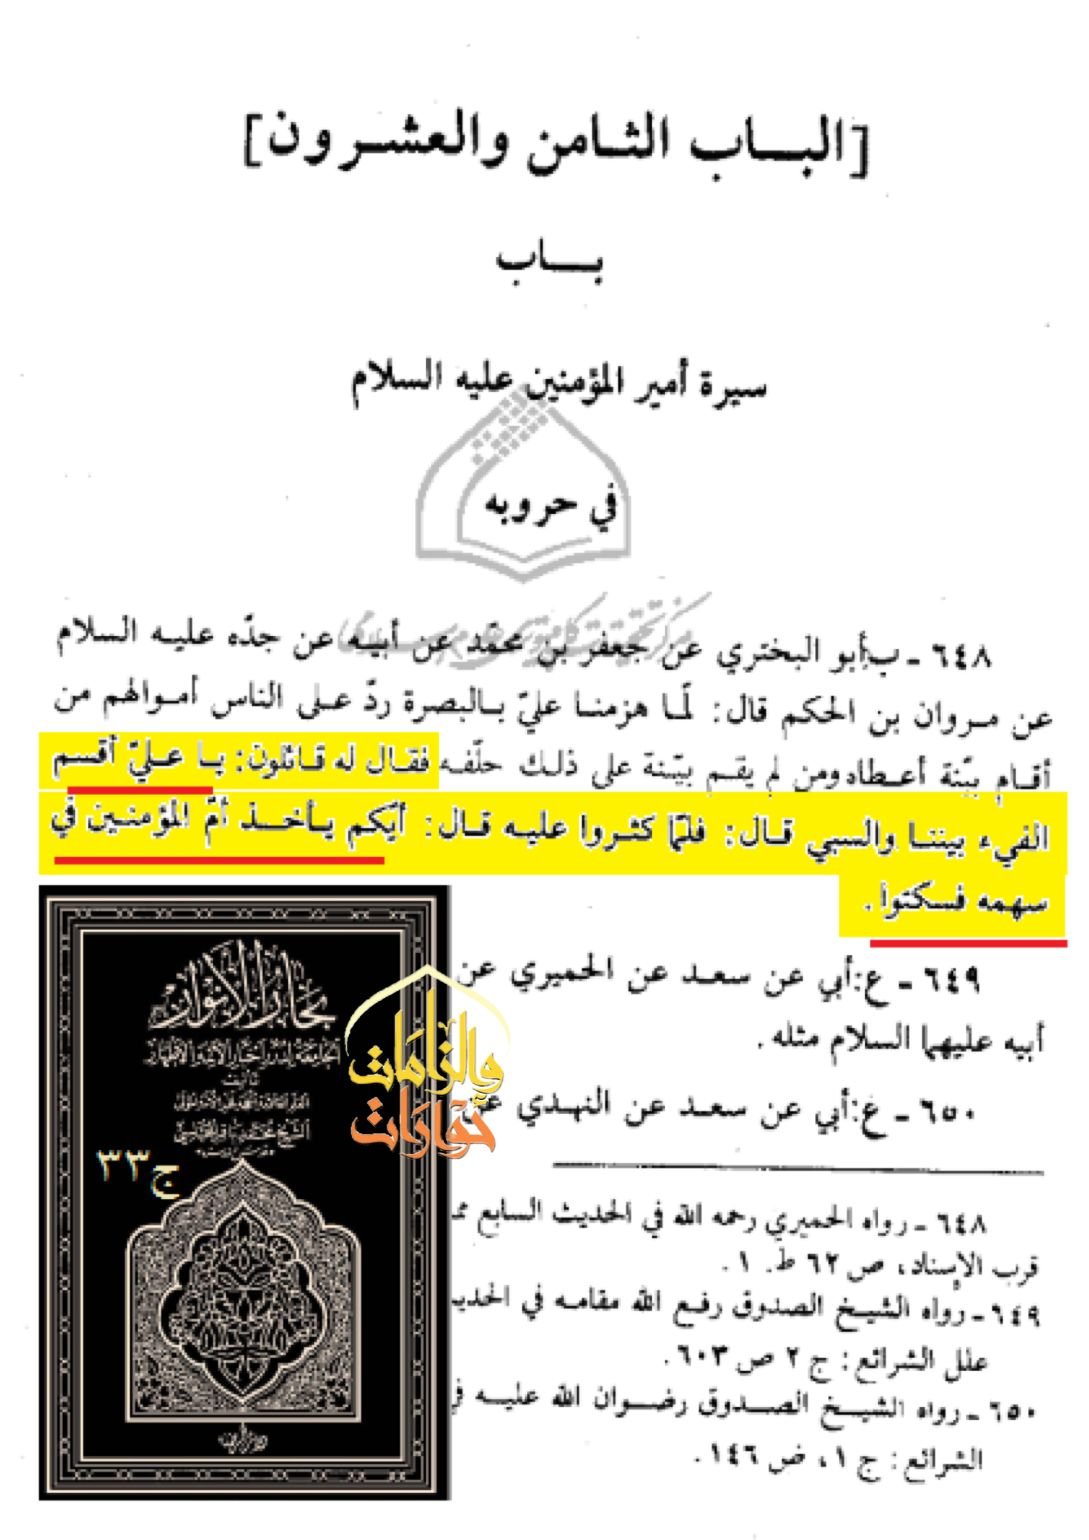 [البـــاب الثـامن والعشـرون]
بـــاب
سيرة أمير المؤمنين عليه السلام
في حروبه
٦٤٨ ـ ب: أبو البختري عن جعفر بن محمّد عن أبيه عن جدّه عليه السلام
عن مروان بن الحكم قال: لمّا هزمنا عليّ بالبصرة ردّ على الناس أموالهم من
أقام بيّنة أعطاه ومن لم يقم بيّنة على ذلك حلّفه فقال له قائلون: يا عليّ أقسم
الفيء بيننا والسبي قال: فلمّا كثروا عليه قال: أيّكم يأخذ أمّ المؤمنين في
سهمه فسكتوا .
٦٤٩ ـ ع: أبي عن سعد عن الحميري عن
أبيه عليهما السلام مثله .
٦٥٠ ـ ع: أبي عن سعد عن النهدي عن
٦٤٨ ـ رواه الحميري رحمه الله في الحديث السابع
قرب الإسناد، ص ٦٢ ط ١ .
٦٤٩ ـ رواه الشيخ الصدوق رفع الله مقامه في
علل الشرائع: ج ٢ ص ٦٠٣ .
٦٥٠ ـ رواه الشيخ الصدوق رضوان الله عليه
الشرائع: ج ١، ص ١٤٦ .
بحار الأنوار
الجامعة لدرر أخبار الأئمة الأطهار
تأليف
ج٣٣
حوارات
والزامات